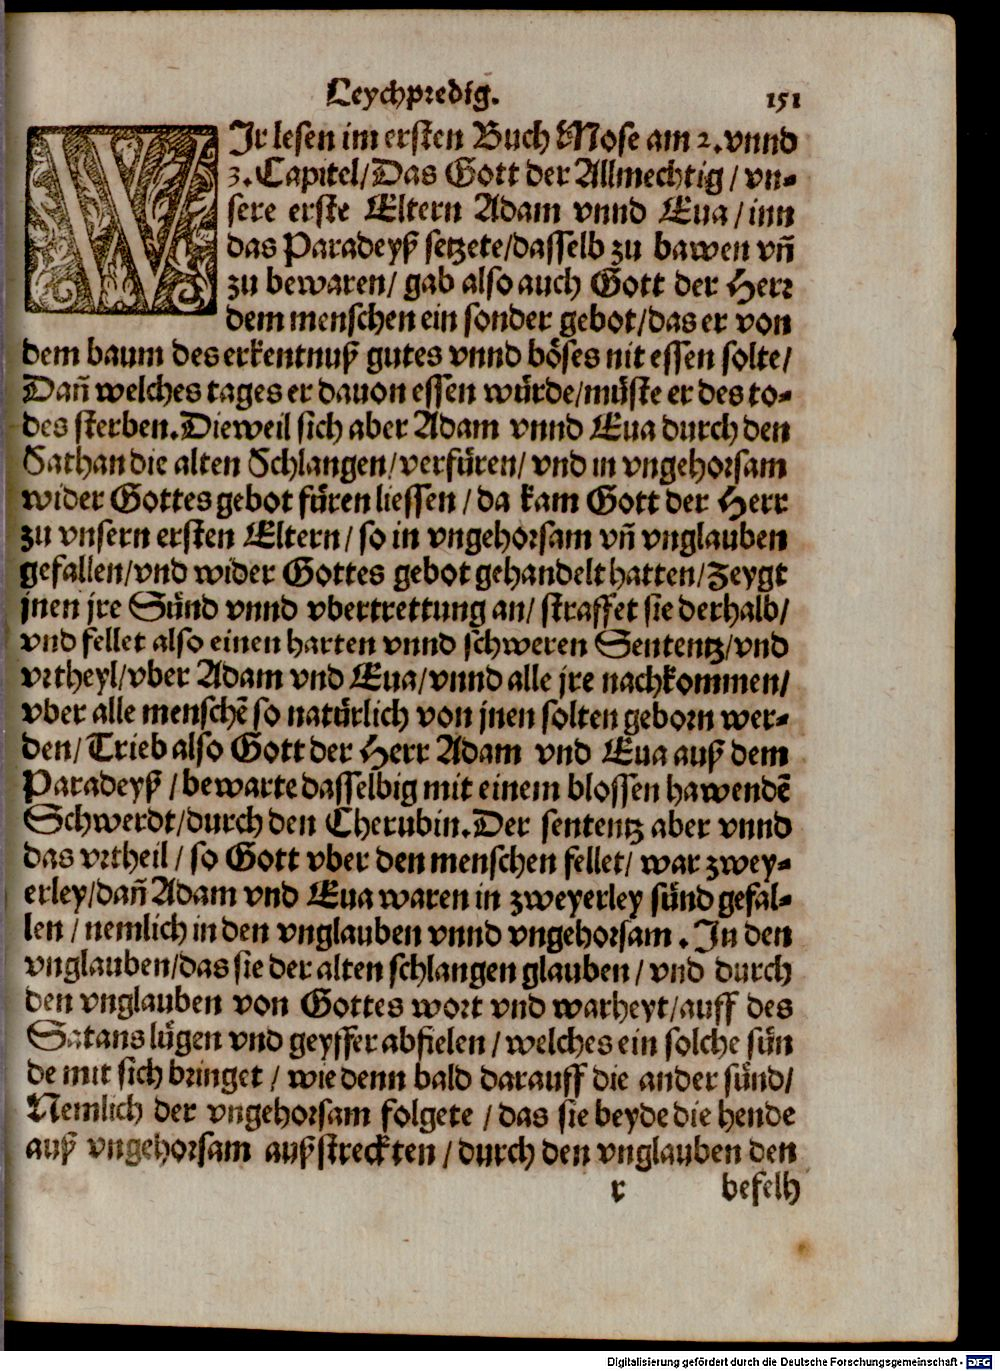 Leychpredig. 151
WJr lesen im ersten Buch Mose am 2. vnnd
3. Capitel/ Das Gott der Allmechtig / vn-
sere erste Eltern Adam vnnd Eua / inn
das Paradeyß setzete/dasselb zu bawen vñ
zu bewaren/ gab also auch Gott der Herr
dem menschen ein sonder gebot/das er von
dem baum des erkentnuß gutes vnnd böses nit essen solte/
Dañ welches tages er dauon essen würde/müste er des to-
des sterben. Dieweil sich aber Adam vnnd Eua durch den
Sathan die alten Schlangen/verfüren/ vnd in vngehorsam
wider Gottes gebot füren liessen / da kam Gott der Herr
zu vnsern ersten Eltern/ so in vngehorsam vñ vnglauben
gefallen/vnd wider Gottes gebot gehandelt hatten/Zeygt
jnen jre Sünd vnnd vbertrettung an/ straffet sie derhalb/
vnd fellet also einen harten vnnd schweren Sententz/vnd
vrtheyl/vber Adam vnd Eua/vnnd alle jre nachkommen/
vber alle menschẽ so natürlich von jnen solten geborn wer-
den/ Trieb also Gott der Herr Adam vnd Eua auß dem
Paradeyß / bewarte dasselbig mit einem blossen hawendẽ
Schwerdt/durch den Cherubin. Der sententz aber vnnd
das vrtheil / so Gott vber den menschen fellet/ war zwey-
erley/dañ Adam vnd Eua waren in zweyerley sünd gefal-
len / nemlich in den vnglauben vnnd vngehorsam . Jn den
vnglauben/das sie der alten schlangen glauben / vnd durch
den vnglauben von Gottes wort vnd warheyt/auff des
Satans lügen vnd geyffer abfielen / welches ein solche sün
de mit sich bringet / wie denn bald darauff die ander sünd/
Nemlich der vngehorsam folgete / das sie beyde die hende
auß vngehorsam außstreckten / durch den vnglauben den
r befelh
Digitalisierung gefördert durch die Deutsche Forschungsgemeinschaft - DFG